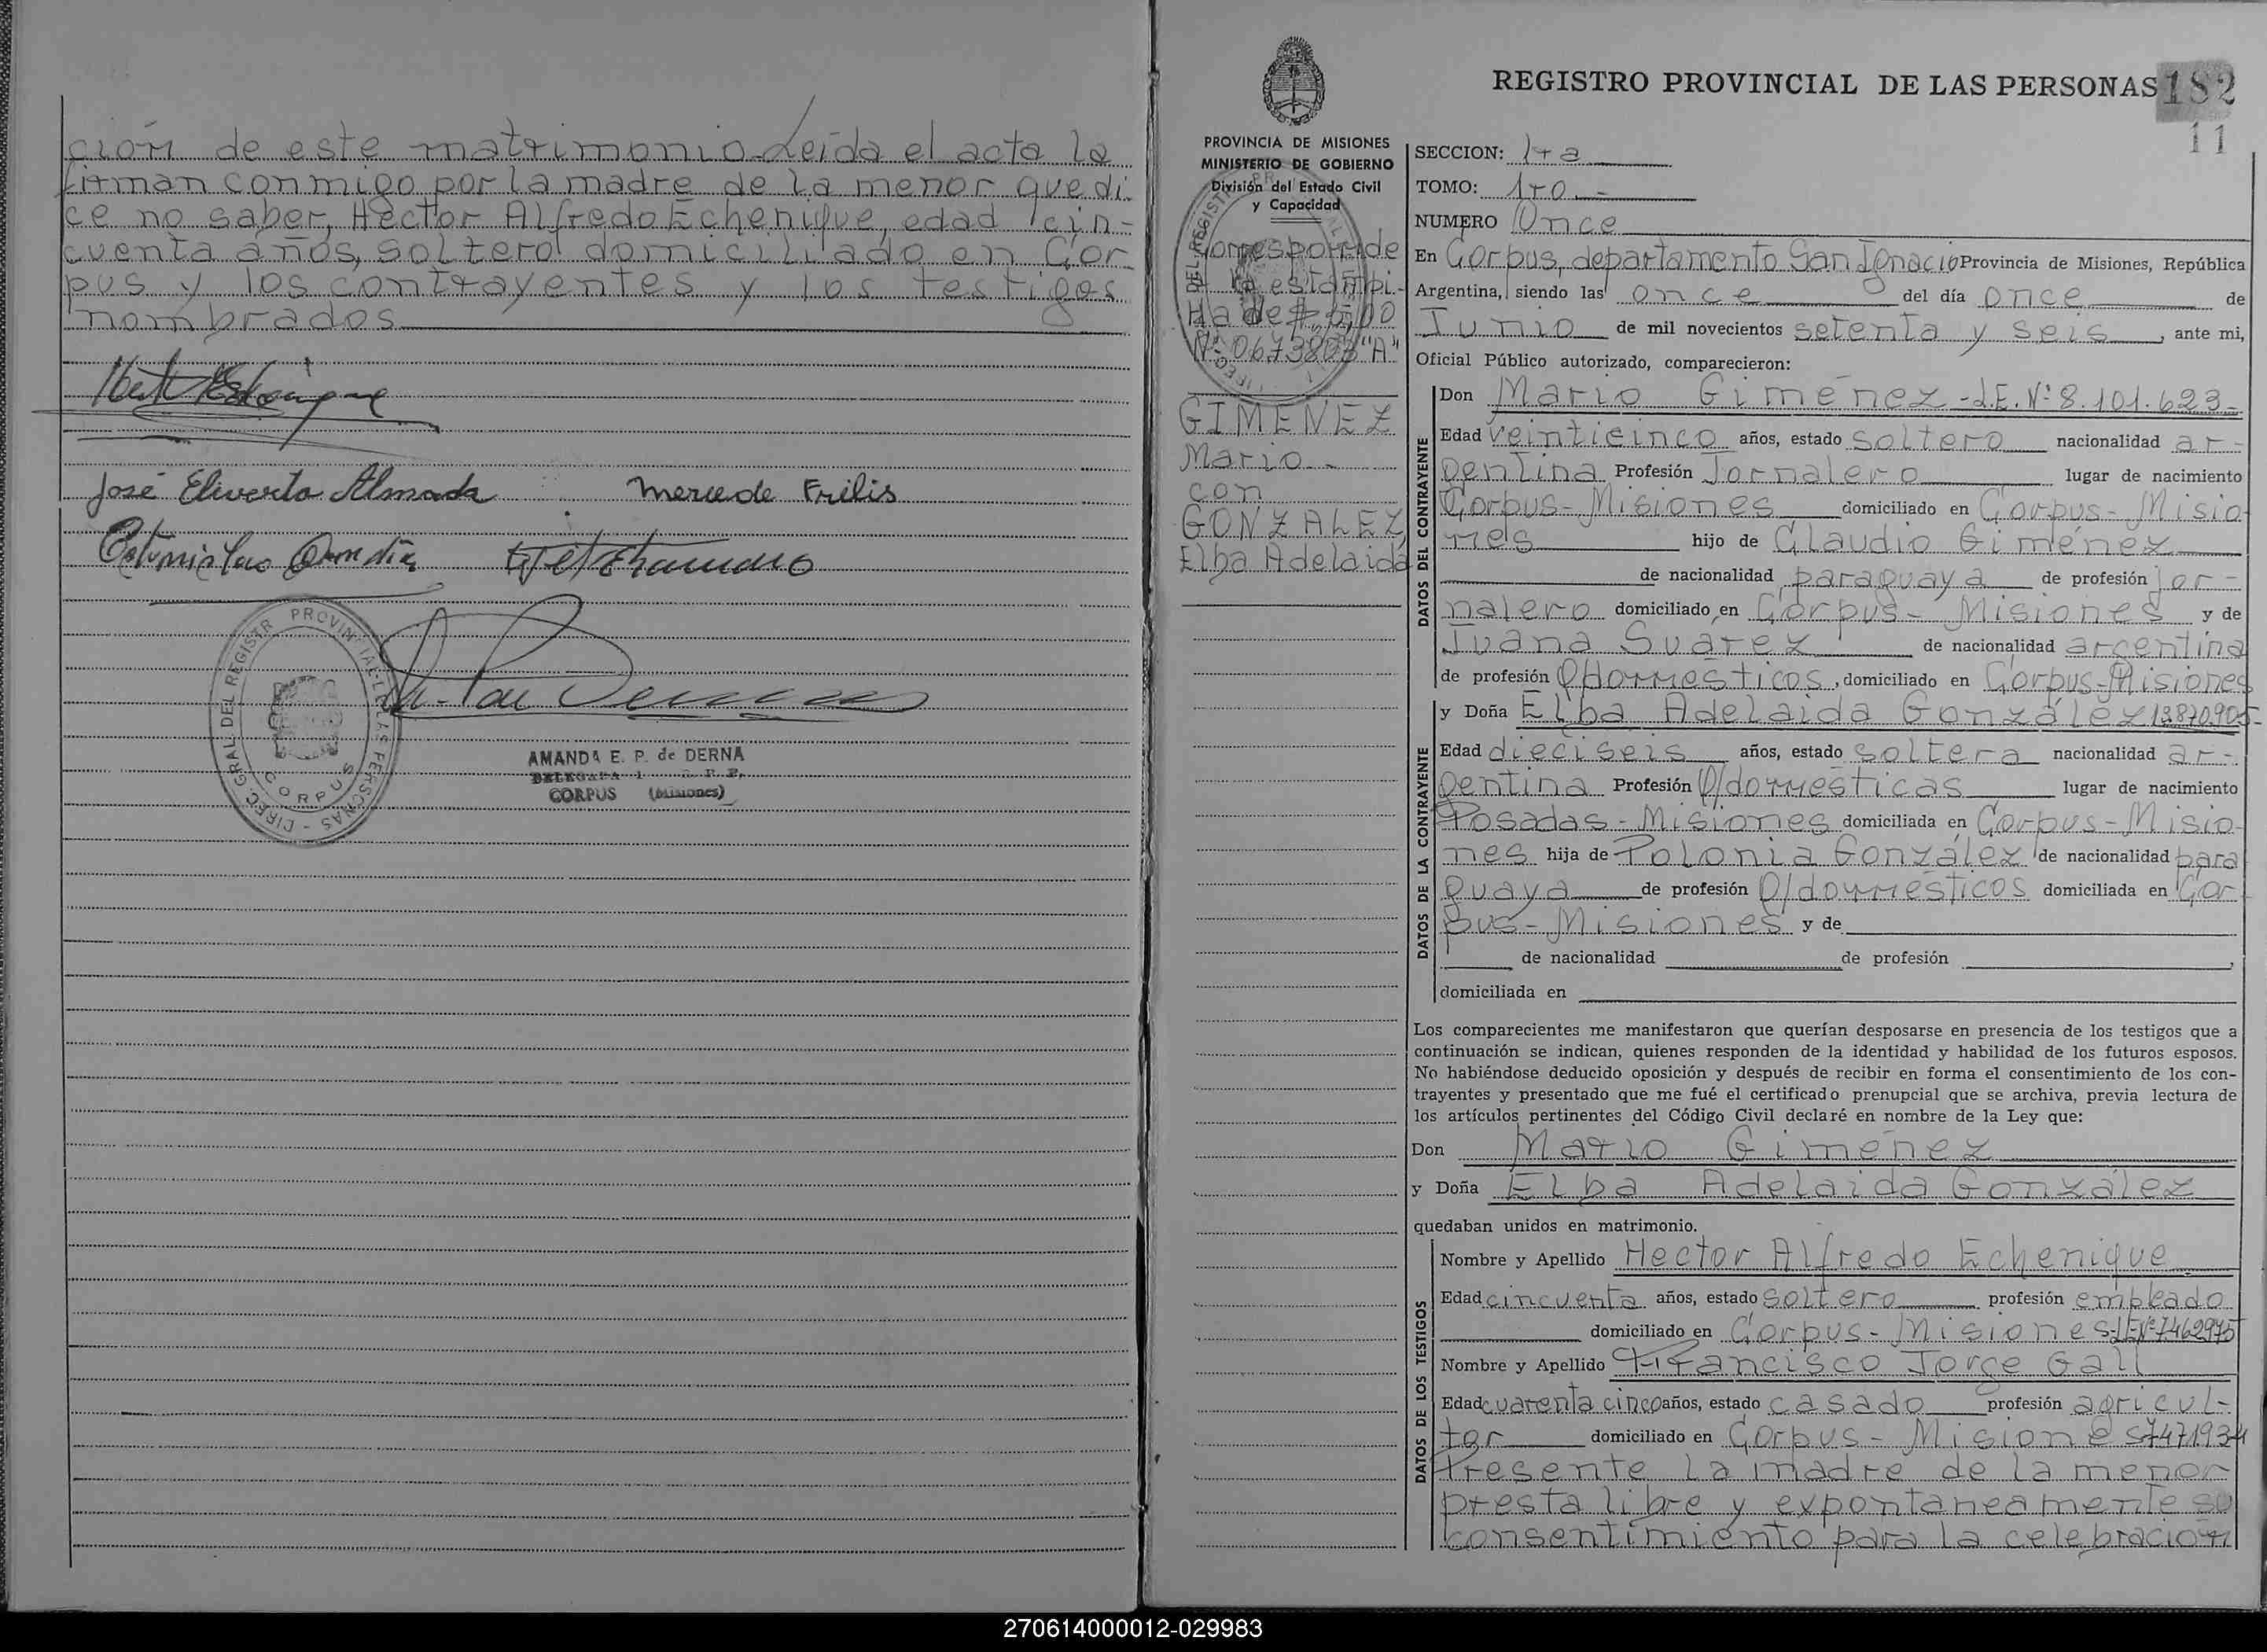 ción de este matrimonio. Leída el acta la
firman conmigo por la madre de la menor que di
ce no saber, Hector Alfredo Echenique, edad cin-
cuenta años, soltero domiciliado en Cor
pus y los contrayentes y los testigos
nombrados
José Eliverto Almada
Mercede Frilis
AMANDA E. P. de DERNA
CORPUS (Misiones)
REGISTRO PROVINCIAL DE LAS PERSONAS 182
11
PROVINCIA DE MISIONES
MINISTERIO DE GOBIERNO
División del Estado Civil
y Capacidad
Corresponde
la estampi-
lla de $ 6,00
Nº 0673803 "A"
GIMENEZ
Mario.-
con
GONZALEZ,
Elba Adelaida
SECCION: 1ra
TOMO: 1ro.-
NUMERO Once
En Corpus, departamento San Ignacio Provincia de Misiones, República
Argentina, siendo las once del día once de
Junio de mil novecientos setenta y seis, ante mi,
Oficial Público autorizado, comparecieron:
DATOS DEL CONTRAYENTE
Don Mario Giménez -L.E. Nº 8.101.623-
Edad veinticinco años, estado soltero nacionalidad ar-
gentina Profesión Jornalero lugar de nacimiento
Corpus-Misiones domiciliado en Corpus-Misio
nes hijo de Claudio Giménez
de nacionalidad paraguaya de profesión jor-
nalero domiciliado en Corpus-Misiones y de
Juana Suarez de nacionalidad argentina
de profesión Q/Domésticos, domiciliado en Corpus-Misiones
DATOS DE LA CONTRAYENTE
y Doña Elba Adelaida González 12.870.905-
Edad dieciseis años, estado soltera nacionalidad ar-
gentina Profesión Q/domésticas lugar de nacimiento
Posadas-Misiones domiciliada en Corpus-Misio-
nes hija de Polonia González de nacionalidad para
guaya de profesión Q/domésticos domiciliada en Cor
pus-Misiones y de
de nacionalidad de profesión ,
domiciliada en
Los comparecientes me manifestaron que querían desposarse en presencia de los testigos que a
continuación se indican, quienes responden de la identidad y habilidad de los futuros esposos.
No habiéndose deducido oposición y después de recibir en forma el consentimiento de los con-
trayentes y presentado que me fué el certificado prenupcial que se archiva, previa lectura de
los artículos pertinentes del Código Civil declaré en nombre de la Ley que:
Don Mario Giménez
y Doña Elba Adelaida González
quedaban unidos en matrimonio.
DATOS DE LOS TESTIGOS
Nombre y Apellido Hector Alfredo Echenique
Edad cincuenta años, estado soltero profesión empleado
domiciliado en Corpus-Misiones-LENº7462975
Nombre y Apellido Francisco Jorge Gall
Edad cuarenta cinco años, estado casado profesión agricul-
tor domiciliado en Corpus-Misiones 7471934
Presente la madre de la menor
presta libre y expontaneamente su
consentimiento para la celebración
270614000012-029983